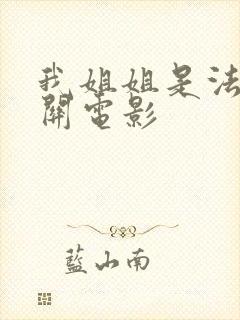 我姐姐是法
開電影
藍山南